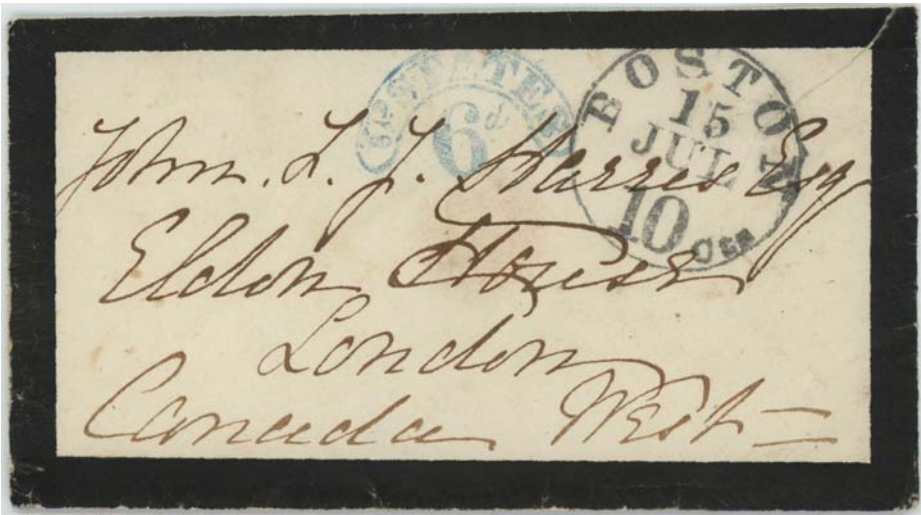 U. STATES
6d
BOSTON
15
JUL
10 Cts
John. L. J. Harris Esq
Eldon House
London
Canada West